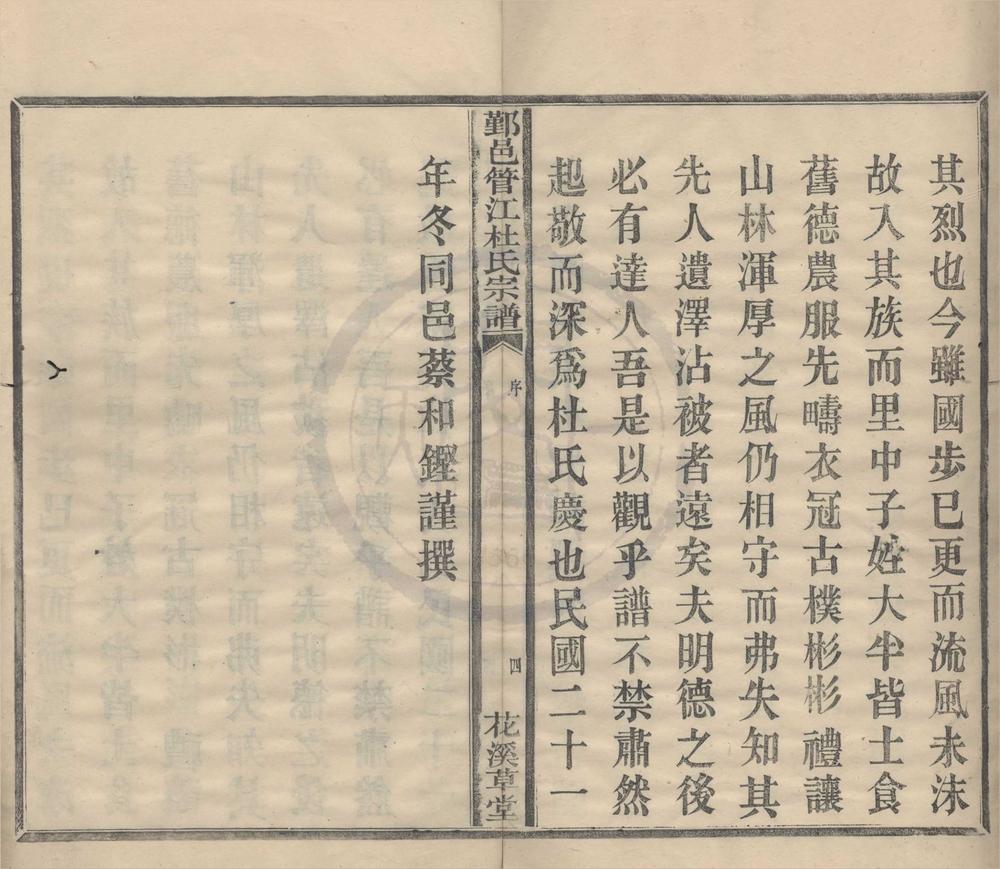 其烈也今雖國步已更而流風未沬
故入其族而里中子姓大半皆士食
舊德農服先疇衣冠古樸彬彬禮讓
山林渾厚之風仍相守而弗失知其
先人遺澤沾被者遠矣夫明德之後
必有達人吾是以觀乎譜不禁肅然
起敬而深爲杜氏慶也民國二十一
鄞邑管江杜氏宗譜
序
四
花溪草堂
年冬同邑蔡和鏗謹撰